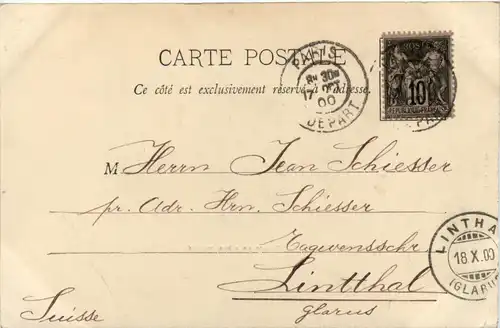 CARTE POSTALE
Ce côté est exclusivement réservé à l'adresse.
PARIS
8H 30M
17 OCT
00
DEPART
10
M Herrn Jean Schiesser
pr. Adr. Hrn. Schiesser
Tagwensschr.
Lintthal
glarus
Suisse
LINTHAL
18.X.00
(GLARUS)